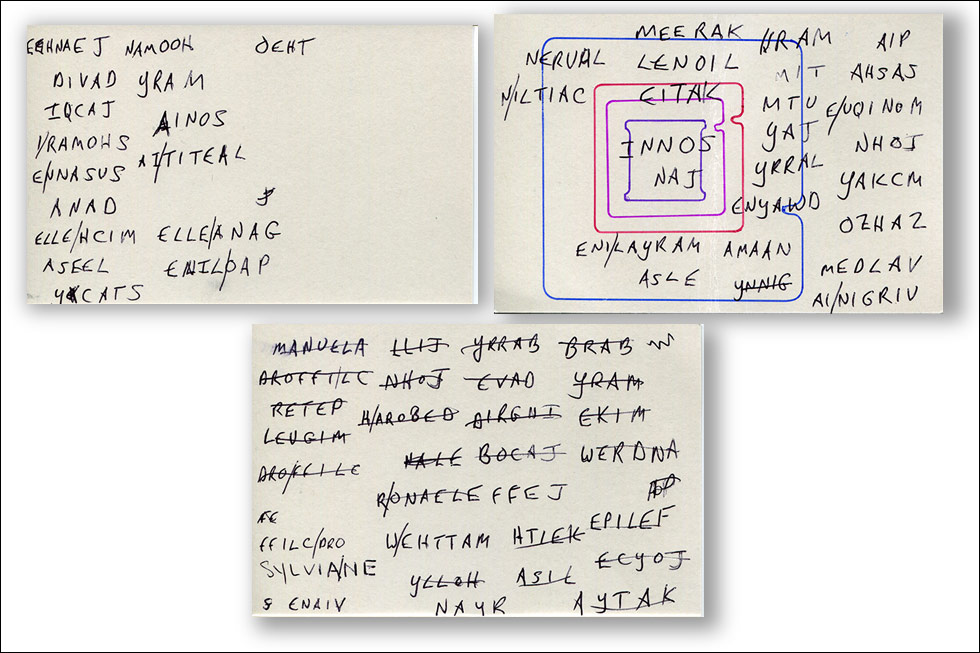 NAMOOH OEHT
DIVAD YRAM
IQCAJ
AINOS
I/RAMOHS
AI/TITEAL
E/NNASUS
ANAD
ELLE/HCIM ELLE/ANAG
ASEEL ENIL/OAP
YCATS
MEERAK YRAM AIP
NERVAL LENOIL
MIT AHSAS
N/ILTIAC EITAK
MTU E/UQINOM
YAJ NHOJ
INNOS
YRRAL
NAJ YAKCM
ENYAWD
OZHAZ
ENI/LAYRAM AMAAN
MEDLAV
ASLE YNNIG
AI/NIGRIV
MANUELA LLIJ YRRAB BRAB
DROFFI/LC NHOJ EVAD YRAM
RETEP H/AROBED DIRGHI EKIM
LEUGIM
DRO/FFILC BOCAJ WERDNA
R/ONAELE FFEJ
FFILC/DRO W/EHTTAM HTIEK EPILEF
SYLVIA/NE ECYOJ
YLLOH ASIL
S ENAIV NAYR AYTAK